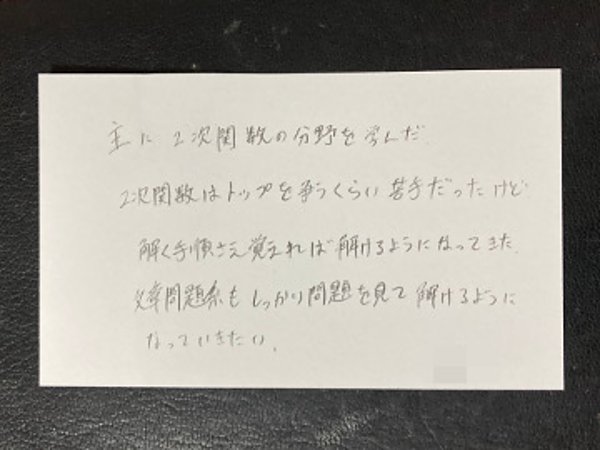 主に2次関数の分野を学んだ.
2次関数はトップを争うくらい苦手だったけど
解く手順さえ覚えれば解けるようになってきた.
文章問題系もしっかり問題を見て解けるように
なっていきたい.